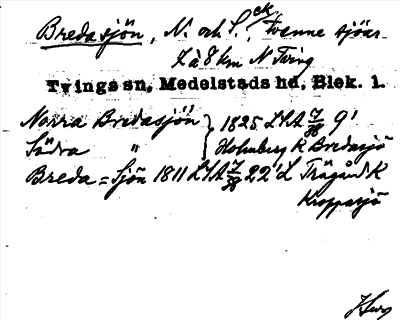 Bredasjön, N. och S., tvenne sjöar
7 à 8 km N Tving
Tvings sn, Medelstads hd, Blek. l.
Norra Bredasjön } 1825 LSA 7/38 9'
Södra " Holmberg K Bredasjö
Breda=Sjön 1811 LSA 7/38 22' L Trägård K
Kroppasjö